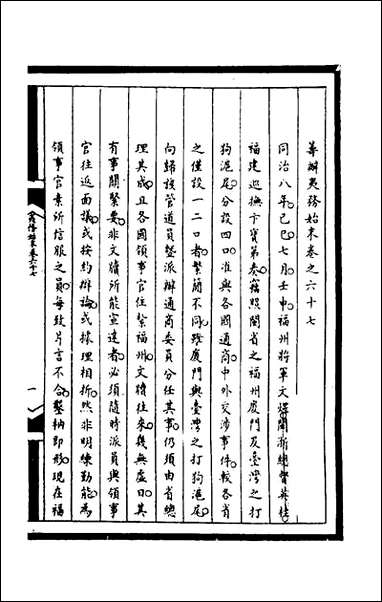 籌辦夷務始末卷之六十七
同治八年己巳七月壬申福州將軍文煜閩浙總督英桂
福建巡撫卞寶第奏竊照閩省之福州廈門及臺灣之打
狗滬尾分設四口准與各國通商中外交涉事件較各省
之僅設一二口者繁簡不同雖廈門與臺灣之打狗滬尾
向歸該管道員暨派辦通商委員分任其事仍須由省總
理其成且各國領事官住紮福州文牘往來幾無虛日其
有事關緊要非文牘所能宣達者必須隨時派員與領事
官往返面議或按約辯論或據理相折然非明練勤能為
領事官素所信服之員每致片言不合鑿枘即形現在福
籌辦夷務始末卷六十七
一